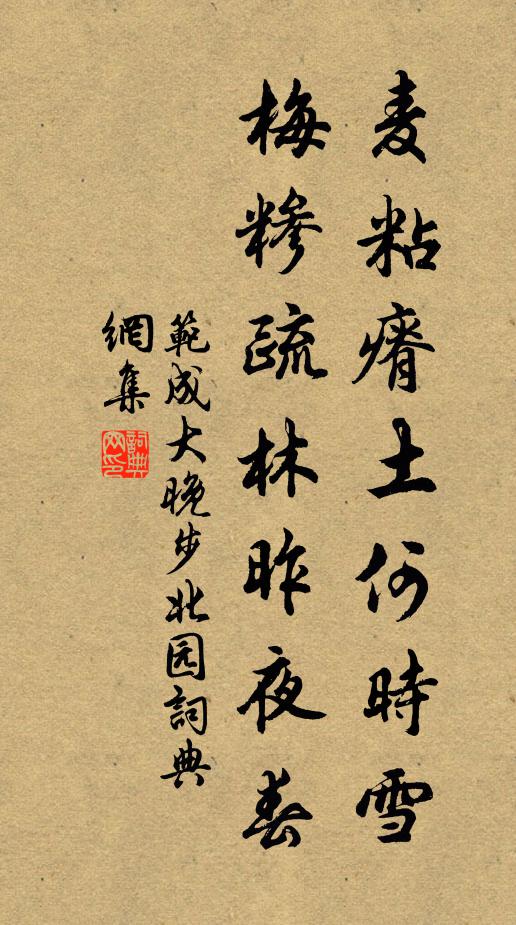 麦粘瘠土何時雪
梅糝疏林昨夜春
範成大晚步北园詞典
網集
詞典
网印